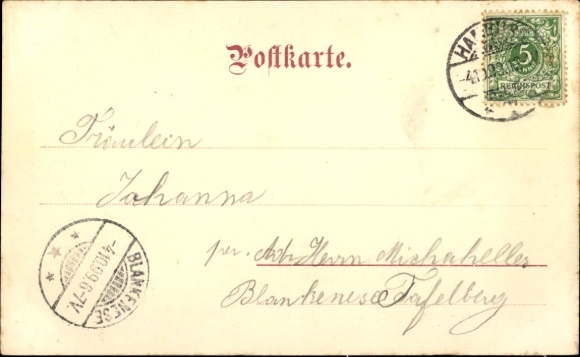 Postkarte.
5
REICHSPOST
Fräulein
Johanna
pr. Adr. Herrn Michahelles
Blankenese Tafelberg
BLANKENESE
-4.10.99.6-7V.